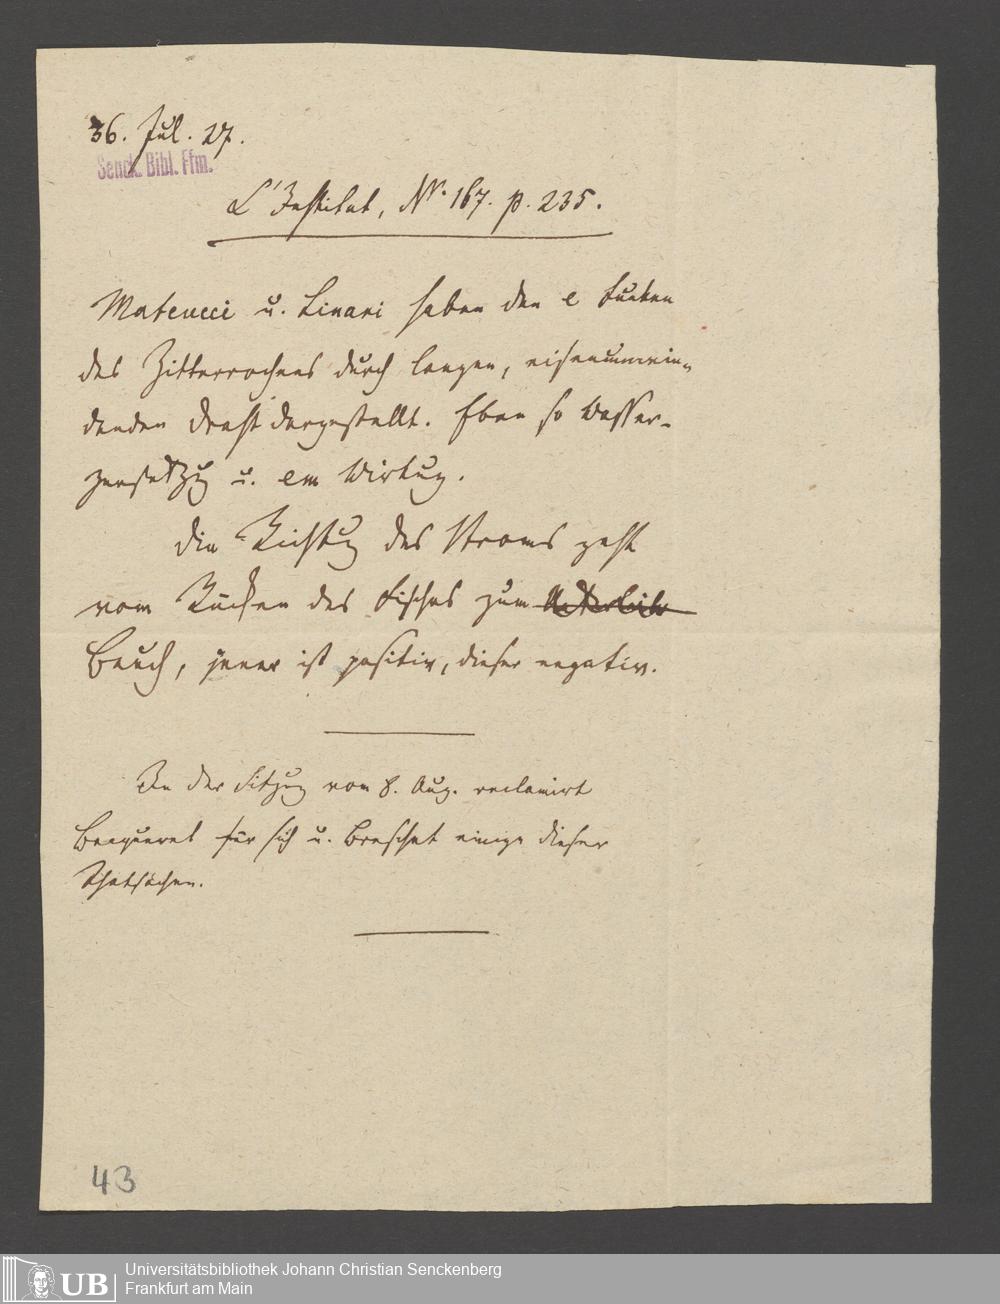 36. Jul. 27.
Senck. Bibl. Ffm.
L'Institut, Nr. 167. p. 235.
Mateucci u. Linari haben den e Funken
des Zitterrochens durch langen, eisenumwin-
denden Draht dargestellt. Eben so Wasser-
zersetzg u. em Wirkug.
Die Richtug des Stroms geht
vom Rücken des Fisches zum
Bauch, jener ist positiv, dieser negativ.
In der Sitzug vom 8. Aug. reclamirt
Becquerel für sich u. Breschet einige dieser
Thatsachen.
43
UB
Universitätsbibliothek Johann Christian Senckenberg
Frankfurt am Main